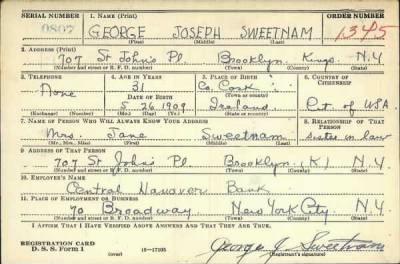 SERIAL NUMBER 1. NAME (Print) ORDER NUMBER
GEORGE JOSEPH SWEETNAM 1345
(First) (Middle) (Last)
2. ADDRESS (Print)
707 St John's Pl Brooklyn Kings N.Y
(Number and street or R. F. D. number) (Town) (County) (State)
3. TELEPHONE 4. AGE IN YEARS 5. PLACE OF BIRTH 6. COUNTRY OF CITIZENSHIP
None 31 Co. Cork
DATE OF BIRTH (Town or county)
5 26 1909 Ireland Cit. of USA.
(Exchange) (Number) (Mo.) (Day) (Yr.) (State or country)
7. NAME OF PERSON WHO WILL ALWAYS KNOW YOUR ADDRESS 8. RELATIONSHIP OF THAT PERSON
Mrs. Jane Sweetnam sister in law
(Mr., Mrs., Miss) (First) (Middle) (Last)
9. ADDRESS OF THAT PERSON
707 St John's Pl Brooklyn (K) N.Y
(Number and street or R. F. D. number) (Town) (County) (State)
10. EMPLOYER'S NAME
Central Hanover Bank
11. PLACE OF EMPLOYMENT OR BUSINESS
70 Broadway New York City N.Y
(Number and street or R. F. D. number) (Town) (County) (State)
I AFFIRM THAT I HAVE VERIFIED ABOVE ANSWERS AND THAT THEY ARE TRUE.
REGISTRATION CARD
D. S. S. Form 1 (over) 16—17105
George J Sweetnam
(Registrant's signature)